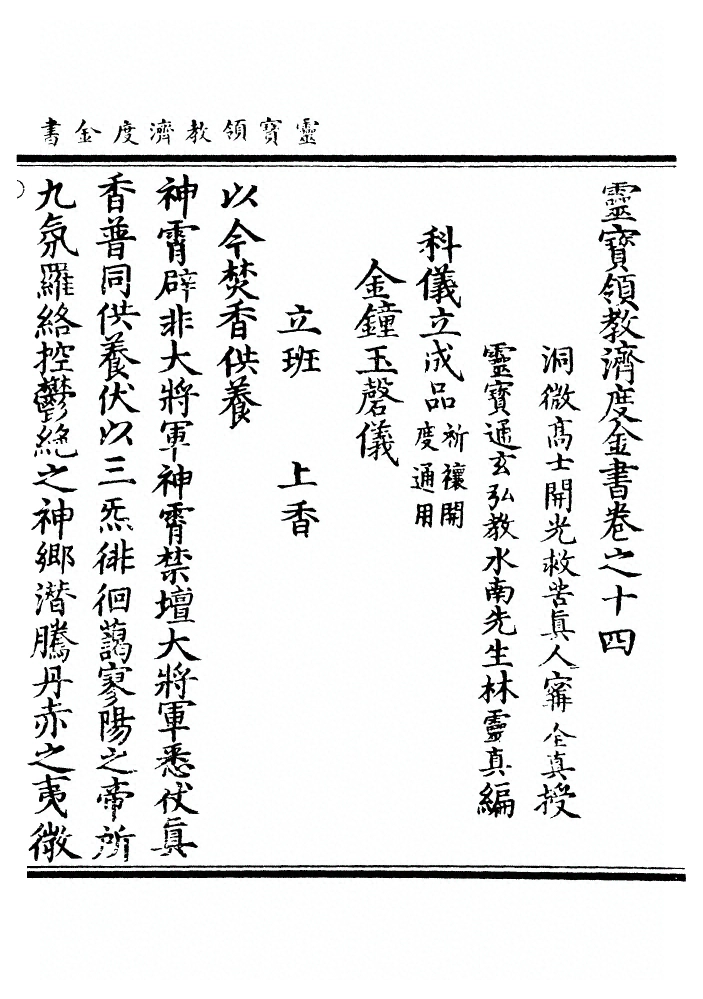 靈寶領教濟度金書
靈寶領教濟度金書卷之十四
洞微高士開光救苦眞人寗全真授
靈寶通玄弘教水南先生林靈真編
科儀立成品祈禳開度通用
金鐘玉磬儀
立班　上香
以今焚香供養
神霄辟非大將軍神霄禁壇大將軍悉伏眞
香普同供養伏以三炁徘徊藹寥陽之帝所
九氛羅絡控鬱絶之神鄉潜騰丹赤之夷徹